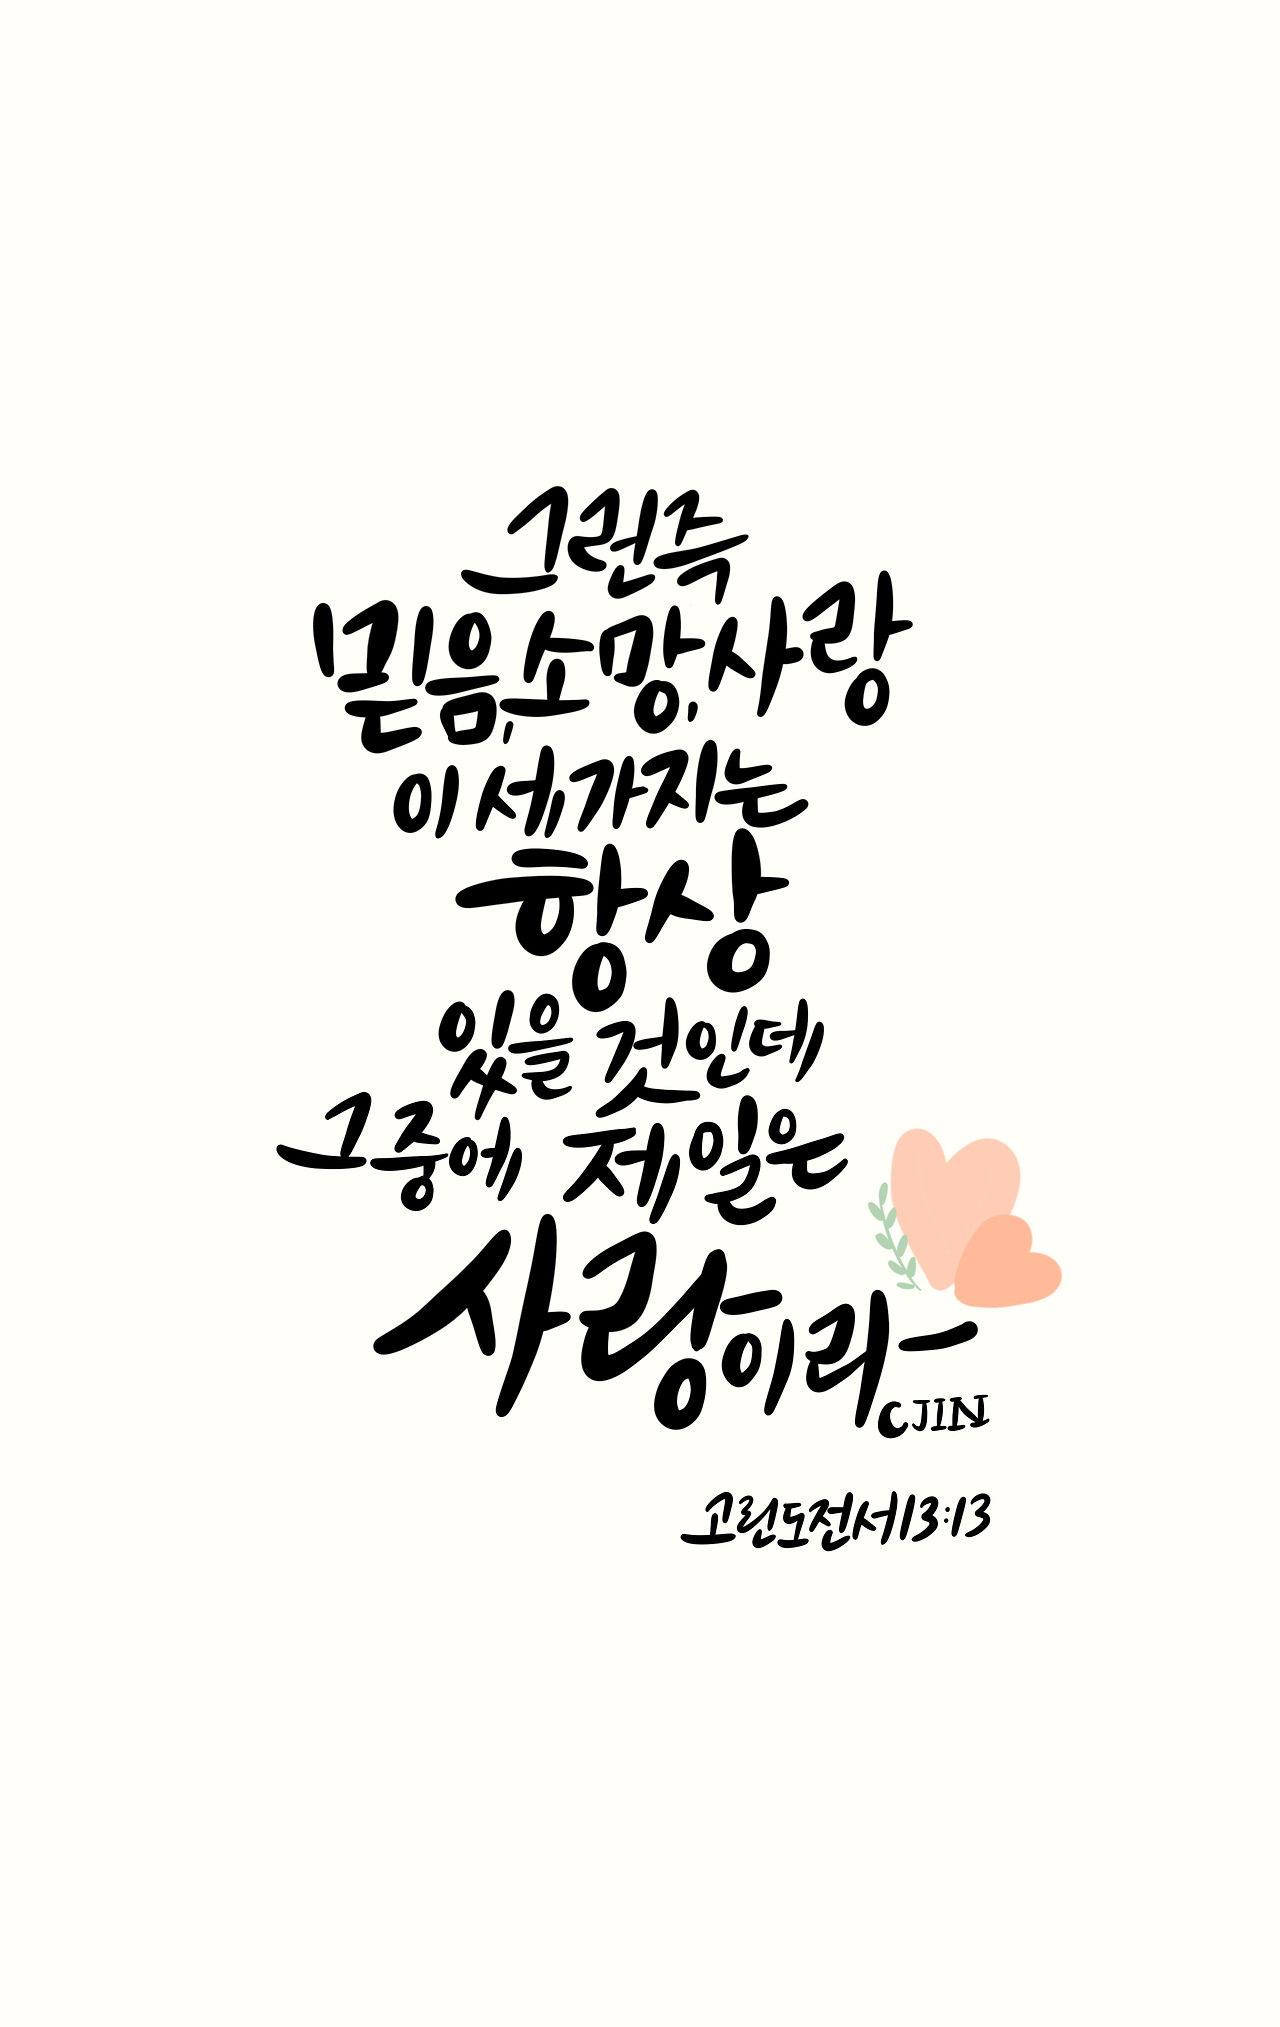 그런즉
믿음,소망,사랑
이 세가지는
항상
있을 것인데
그중에 제일은
사랑이라
CJIN
고린도전서13:13